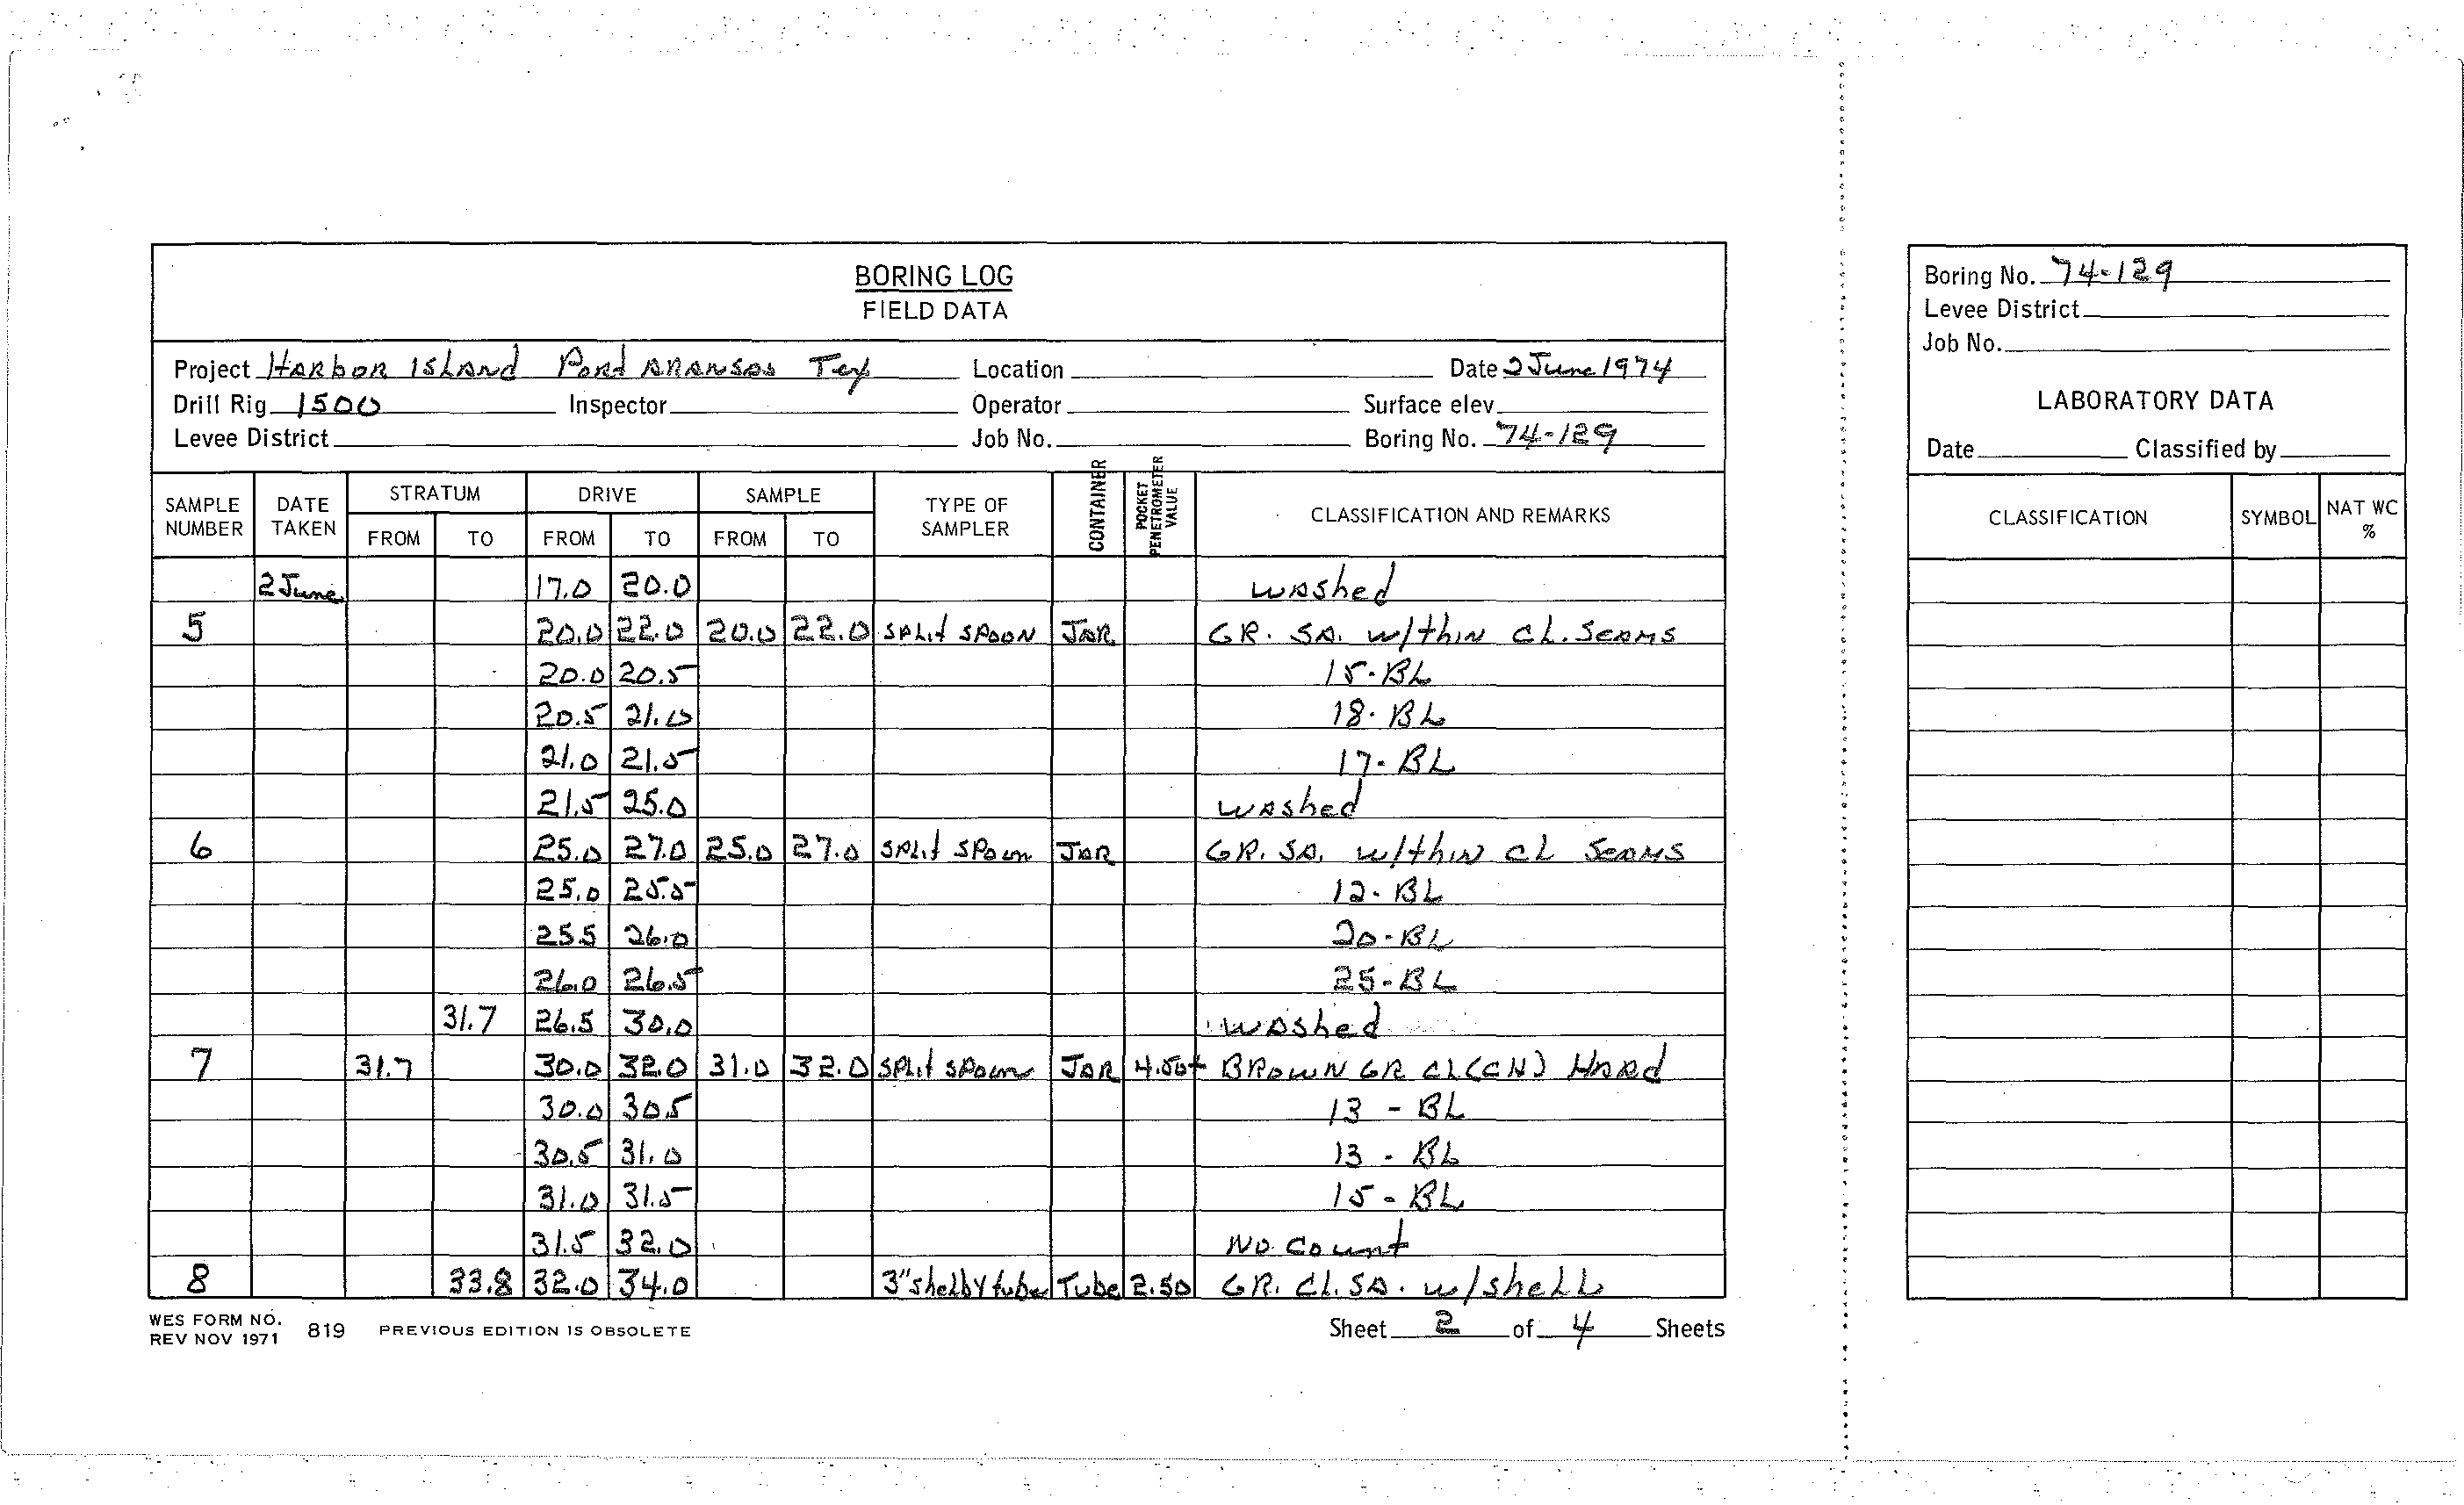 BORING LOG
FIELD DATA
Project Harbor Island Port Aransas Tex Location Date 2 June 1974
Drill Rig 1500 Inspector Operator Surface elev.
Levee District Job No. Boring No. 74-129
SAMPLE NUMBER DATE TAKEN STRATUM FROM TO DRIVE FROM TO SAMPLE FROM TO TYPE OF SAMPLER CONTAINER POCKET PENETROMETER VALUE CLASSIFICATION AND REMARKS
2 June 17.0 20.0 washed
5 20.0 22.0 20.0 22.0 Split Spoon JAR GR. SA. w/thin CL. Seams
20.0 20.5 15-BL
20.5 21.0 18-BL
21.0 21.5 17-BL
21.5 25.0 washed
6 25.0 27.0 25.0 27.0 Split Spoon JAR GR. SA. w/thin CL Seams
25.0 25.5 12-BL
25.5 26.0 20-BL
26.0 26.5 25-BL
31.7 26.5 30.0 washed
7 31.7 30.0 32.0 31.0 32.0 Split Spoon JAR 4.50+ BROWN GR CL (CH) Hard
30.0 30.5 13 - BL
30.5 31.0 13 - BL
31.0 31.5 15 - BL
31.5 32.0 No Count
8 33.8 32.0 34.0 3" shelby tube Tube 2.50 GR. CL. SA. w/shell
WES FORM NO. 819 PREVIOUS EDITION IS OBSOLETE
REV NOV 1971
Sheet 2 of 4 Sheets
Boring No. 74-129
Levee District
Job No.
LABORATORY DATA
Date Classified by
CLASSIFICATION SYMBOL NAT WC %